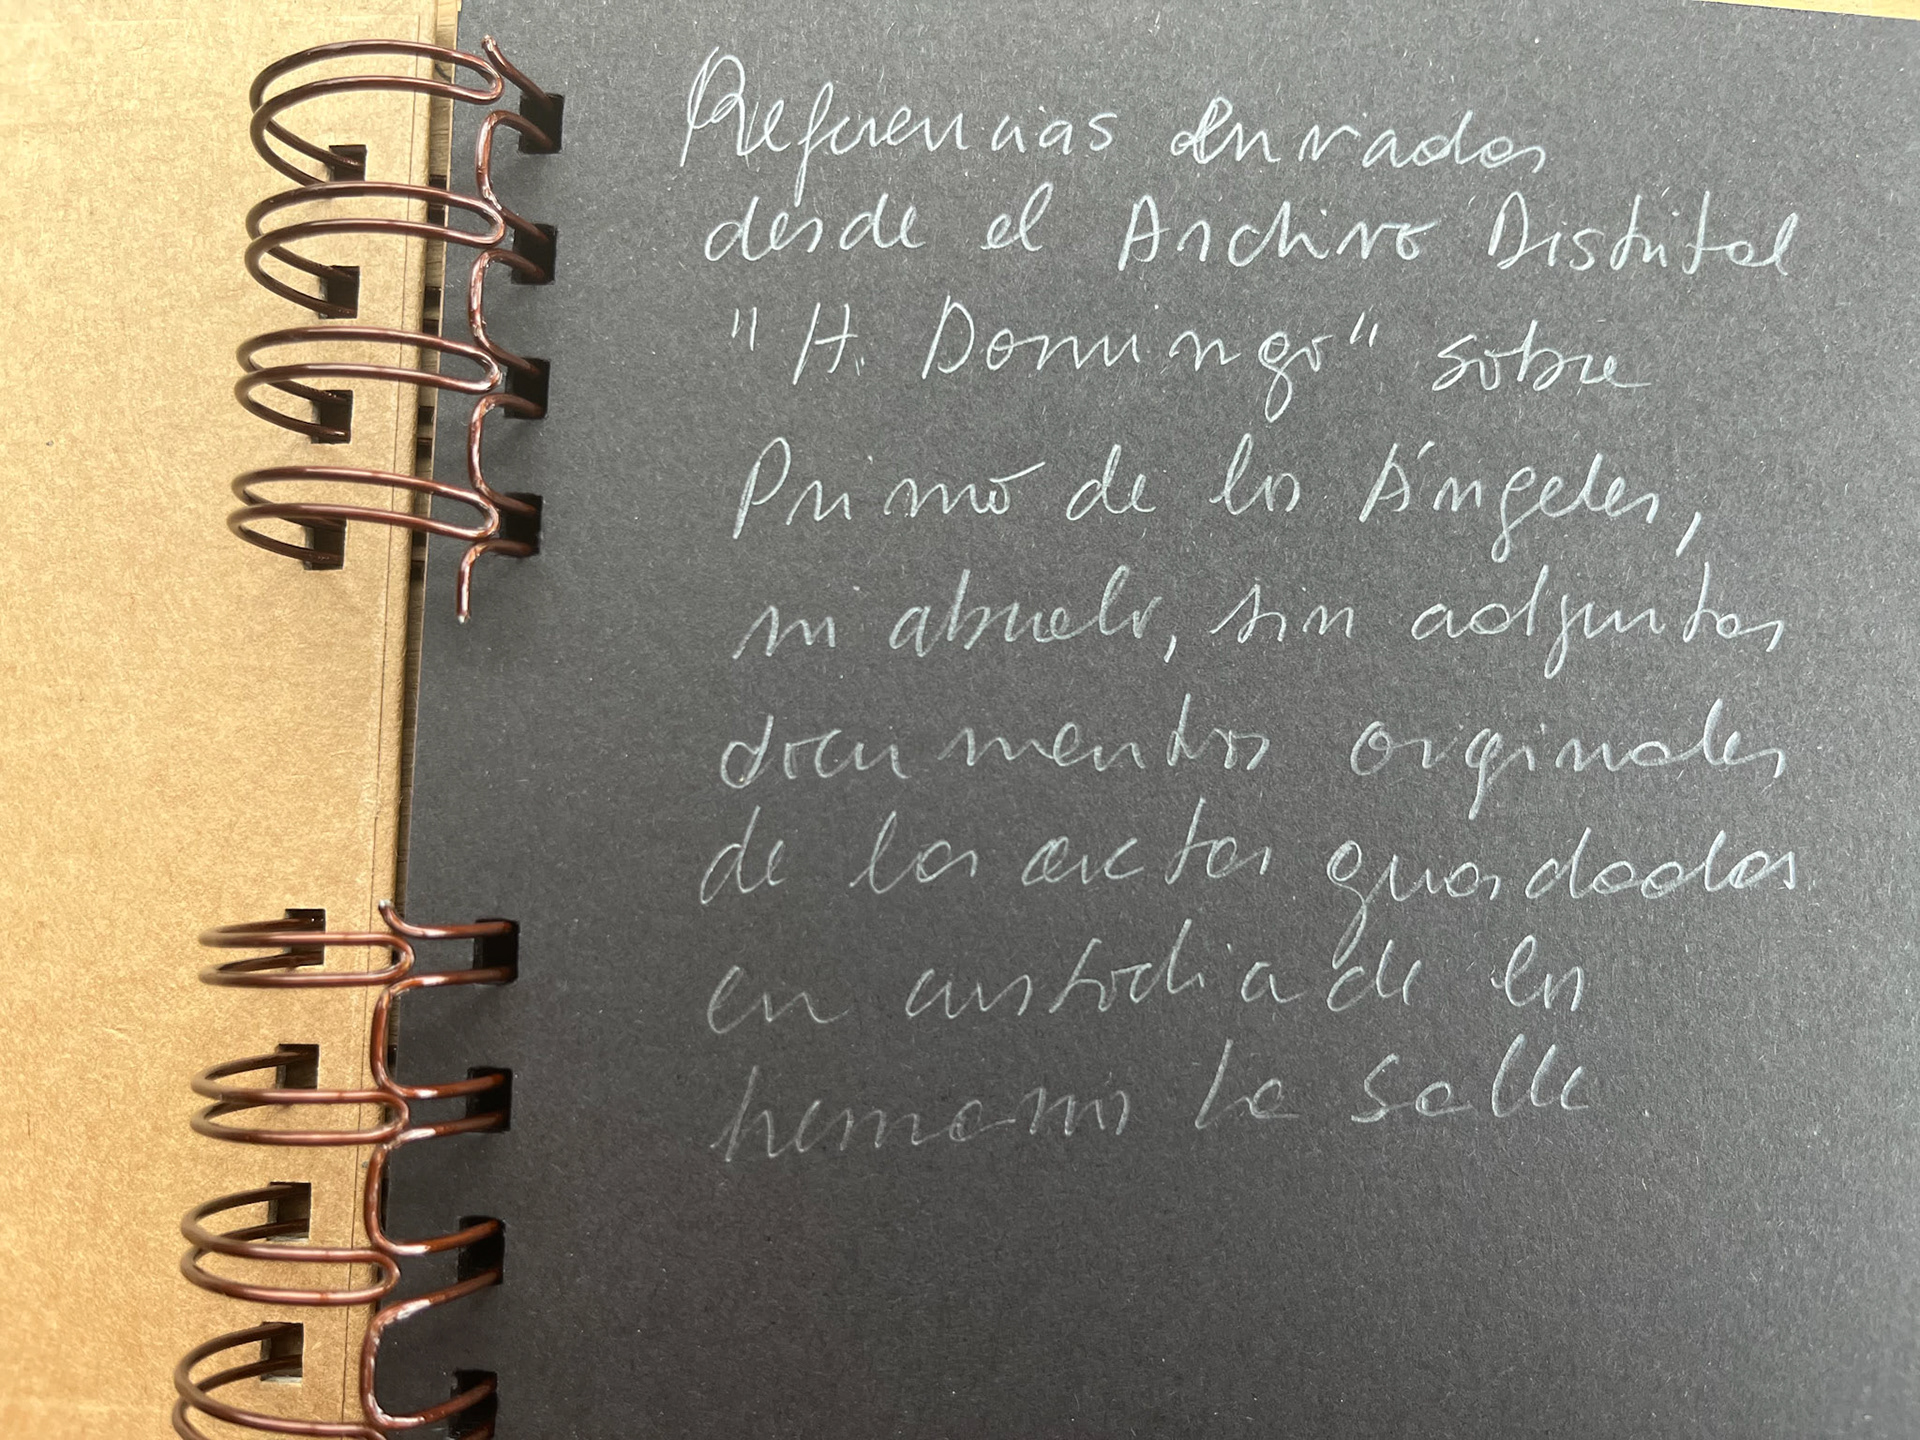 Referencias enviadas
desde el Archivo Distrital
"H. Domingo" sobre
Primo de los Ángeles,
mi abuelo, sin adjuntos
documentos originales
de las actas guardadas
en custodia de los
hermanos La Salle